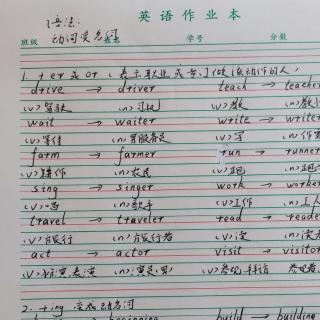 英语作业本
语法:
动词变名词
班级 姓名 学号 分数
1. + er 或 or (表示职业或专门做该动作的人)
drive → driver teach → teacher
(v) 驾驶 (n) 司机 (v) 教 (n)
wait → waiter write → write
(v) 等待 (n) 男服务员 (v) 写 (n) 作
farm → farmer run → runner
(v) 耕作 (n) 农民 (v) 跑 (n) 跑
sing → singer work → worke
(v) 唱 (n) 歌手 (v) 工作 (n) 工人
travel → traveler read → reade
(v) 旅行 (n) 旅行者 (v) 读 (n) 读
act → actor visit → visitor
(v) 扮演,表演 (n) 演员(男) (v) 参观,拜访
2. + ing 变成动名词
beginning build → building